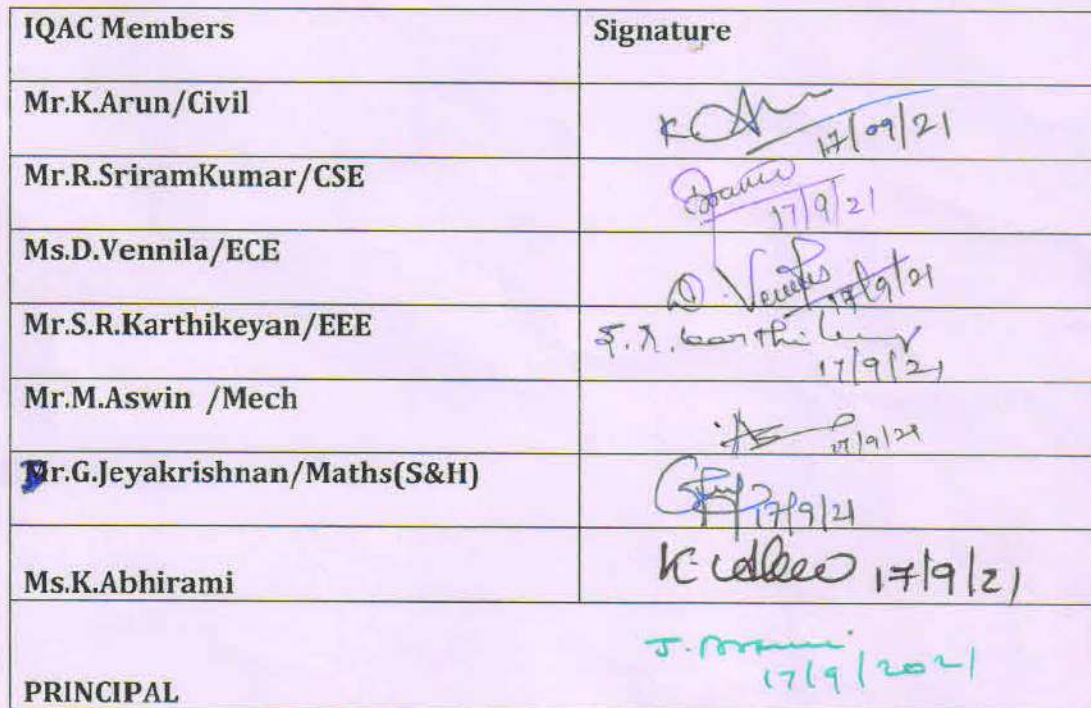 IQAC Members Signature
Mr.K.Arun/Civil K.
17/09/21
Mr.R.SriramKumar/CSE
17/9/21
Ms.D.Vennila/ECE D.
17/9/21
Mr.S.R.Karthikeyan/EEE S.R. Karthikeyan
17/9/21
Mr.M.Aswin /Mech
17/9/21
Mr.G.Jeyakrishnan/Maths(S&H)
17/9/21
Ms.K.Abhirami K. 17/9/21
PRINCIPAL J.
17/9/2021